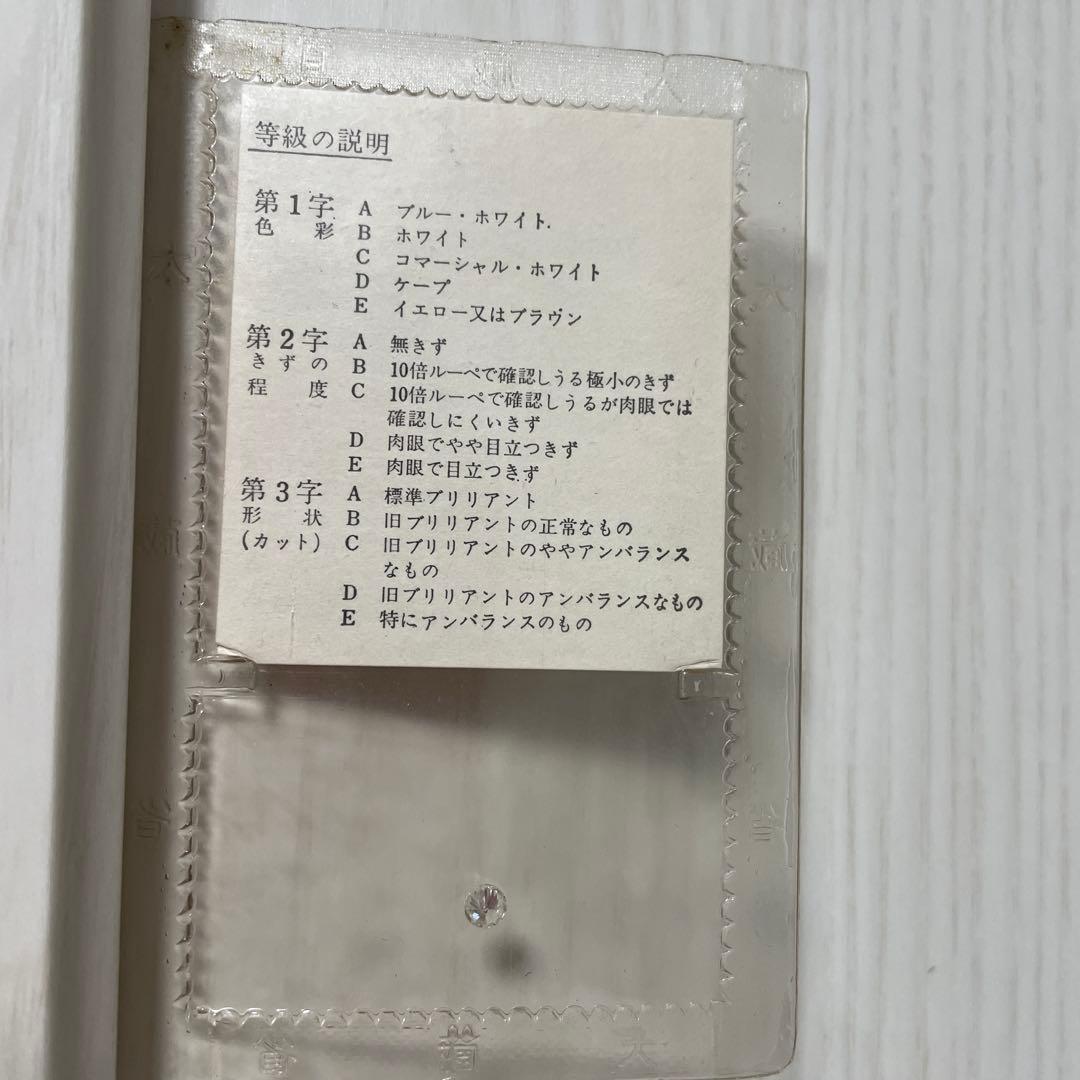 等級の説明
第1字 A ブルー・ホワイト.
色彩 B ホワイト
C コマーシャル・ホワイト
D ケープ
E イエロー又はブラウン
第2字 A 無きず
きずの B 10倍ルーペで確認しうる極小のきず
程度 C 10倍ルーペで確認しうるが肉眼では
確認しにくいきず
D 肉眼でやや目立つきず
E 肉眼で目立つきず
第3字 A 標準ブリリアント
形状 B 旧ブリリアントの正常なもの
(カット) C 旧ブリリアントのややアンバランス
なもの
D 旧ブリリアントのアンバランスなもの
E 特にアンバランスのもの
大
蔵
省